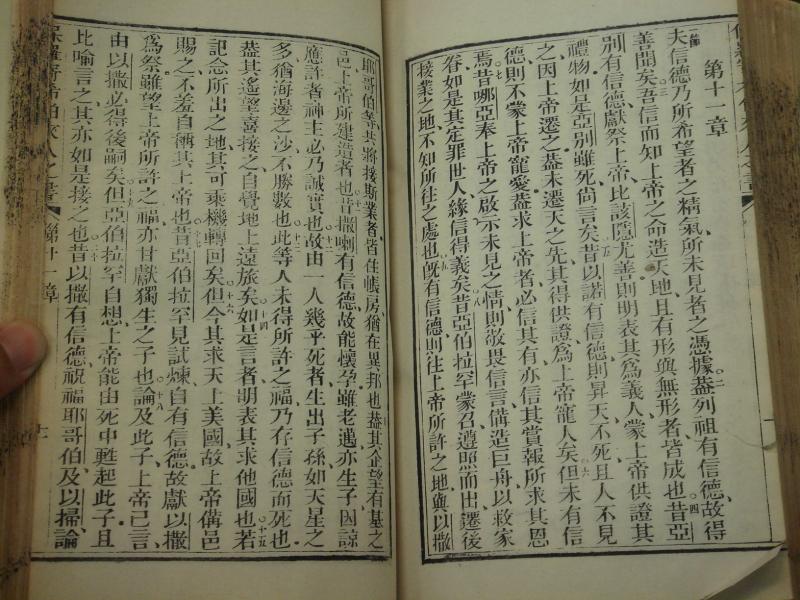 第十一章
一節夫信德乃所希望者之精氣所未見者之憑據○二蓋列祖有信德故得
善聞矣○三吾信而知上帝之命造天地且有形與無形者皆成也○四昔亞
別有信德獻祭上帝比該隱尤善則明表其爲義人蒙上帝供證其
禮物如是亞別雖死尚言矣○五昔以諾有信德則昇天不死且人不見
之因上帝遷之蓋未遷天之先其得供證爲上帝寵人矣○六但未有信
德則不蒙上帝寵愛蓋求上帝者必信其有亦信其賞報所求其恩
焉○七昔哪亞奉上帝之啟示未見之情則敬畏信言備造巨舟以救家
眷如是其定罪世人緣信得義矣○八昔亞伯拉罕蒙召遵照而出遷後
接業之地不知所往之處也○九旣有信德則往上帝所許之地與以撒
耶哥伯等共將接斯業者皆住帳房猶在異邦也○十蓋其企望有基之
邑上帝所建造者也○十一昔撒喇有信德故能懷孕雖老邁亦生子因諒
應許者神主必乃誠實也○十二故由一人幾乎死者生出子孫如天星之
多猶海邊之沙不勝數也○十三此等人未得所許之福乃存信德而死也
蓋其遙望喜接之自覺地上遠旅矣○十四如是言者明表其求他國也○十五若
記念所出之地其可乘機轉回矣○十六但今其求天上美國故上帝備邑
賜之不羞自稱其上帝也○十七昔亞伯拉罕見試煉自有信德故獻以撒
爲祭雖望上帝所許之福亦甘獻獨生之子也○十八論及此子上帝已言
由以撒必得後嗣矣○十九但亞伯拉罕自想上帝能由死中甦起此子且
比喻言之其亦如是接之也○二十昔以撒有信德祝福耶哥伯及以掃論
保羅寄希伯來人之書 第十一章